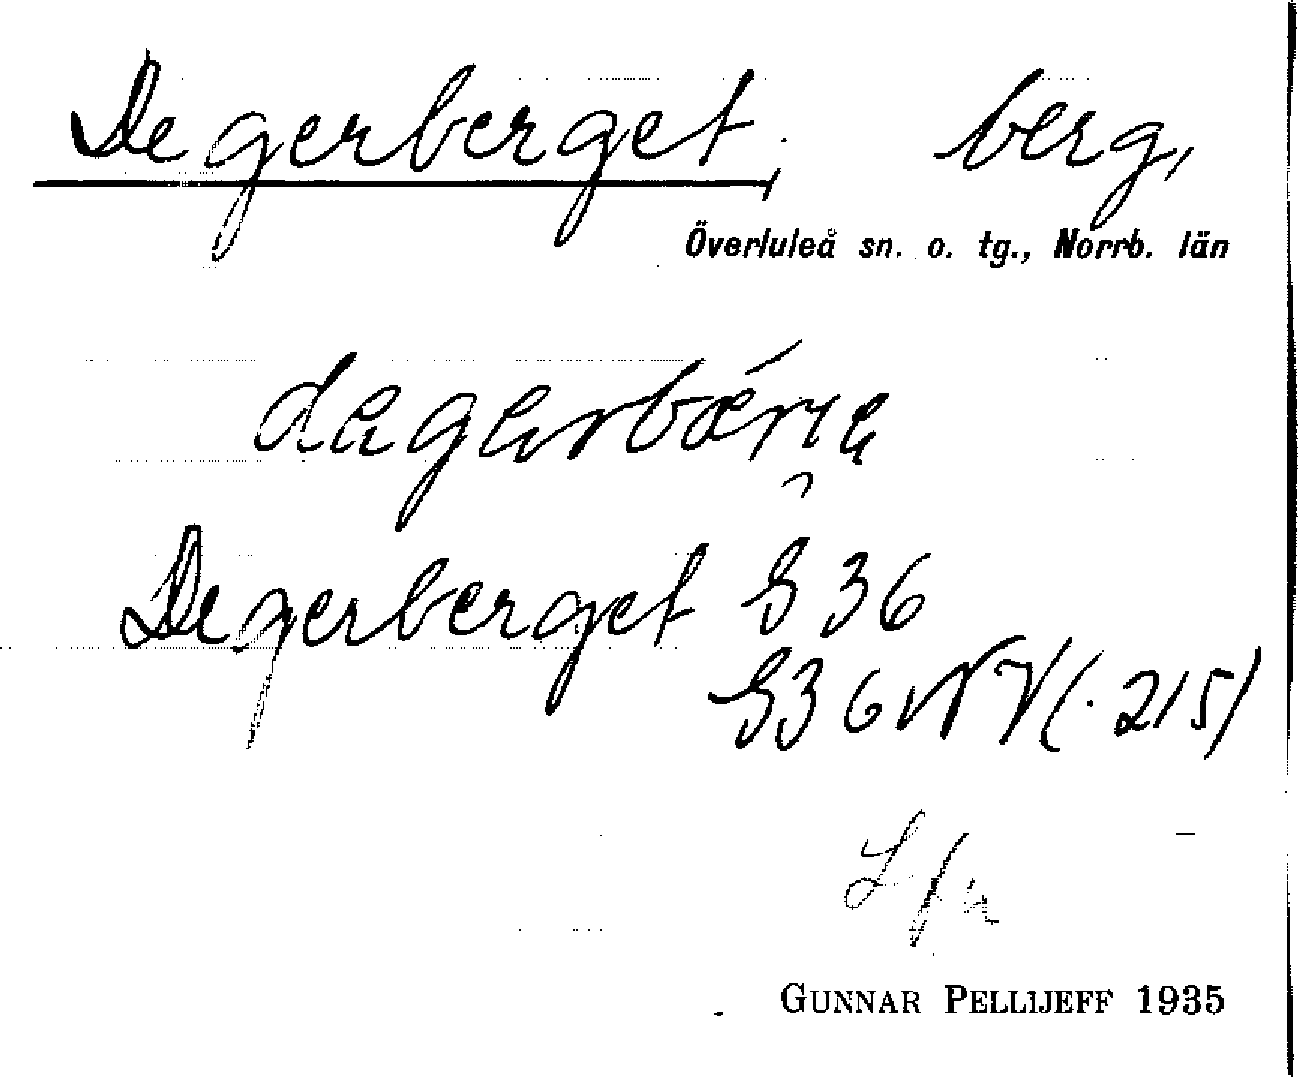 Degerberget, berg,
Överluleå sn. o. tg., Norrb. län
Degerberget G 36
G36 NV (. 215)
GUNNAR PELLIJEFF 1935